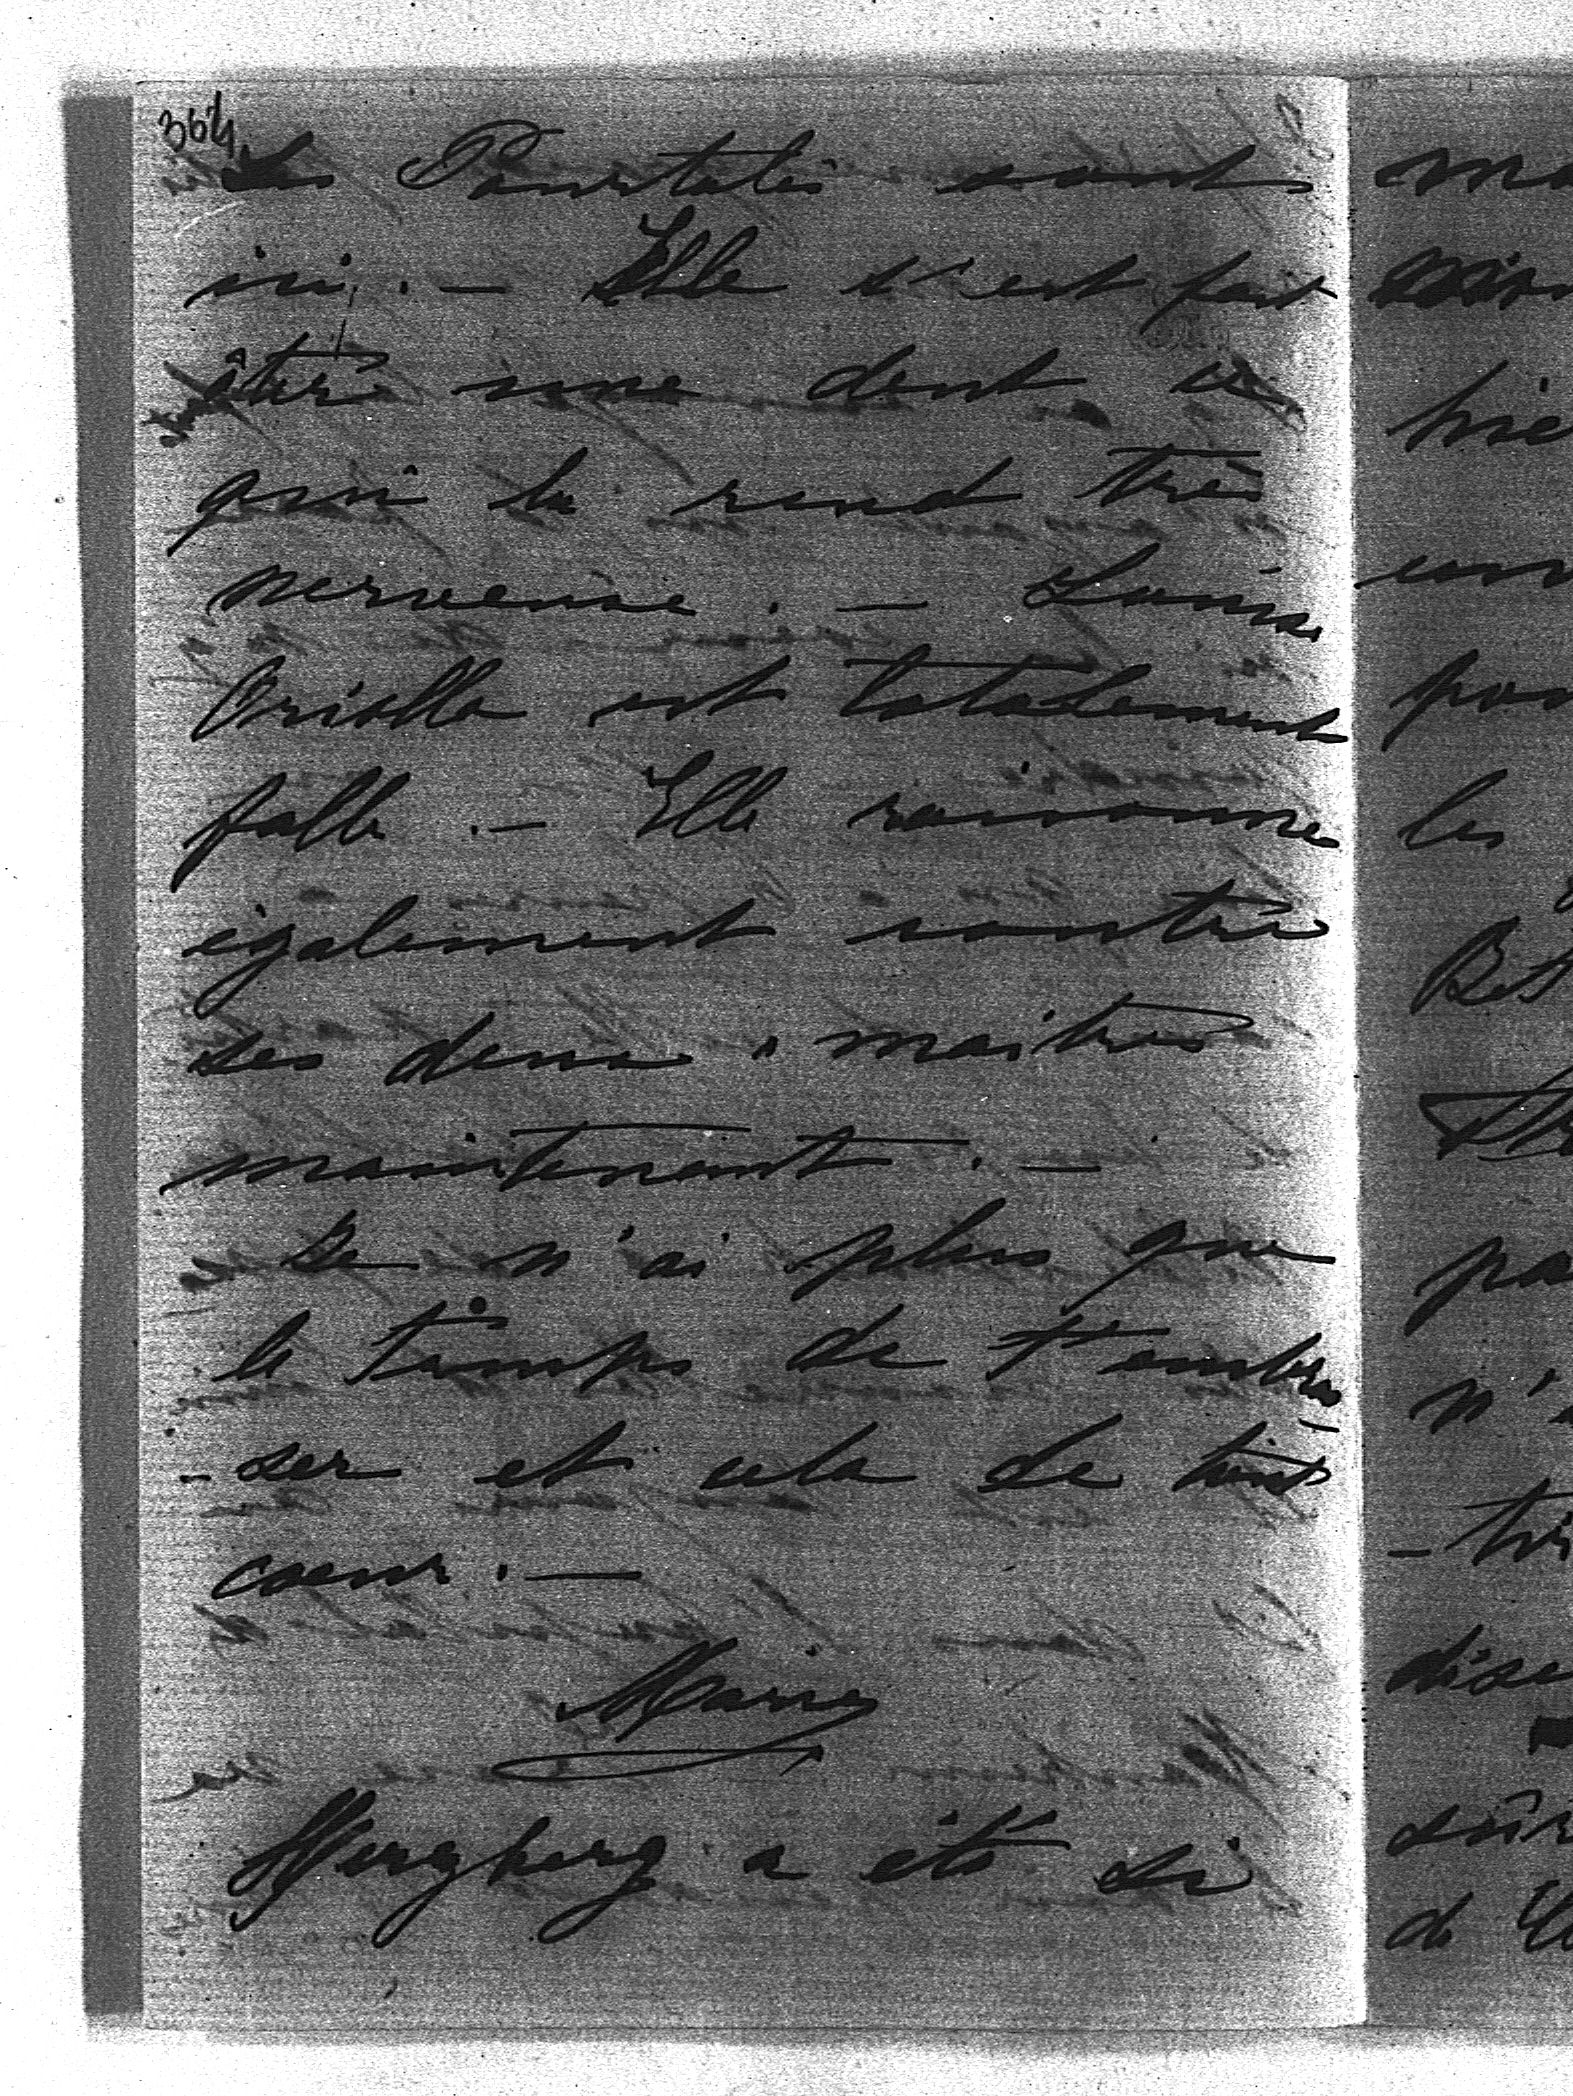 364
Les Pourtalès sont
ici. — Elle s'est fait
ôter une dent ce
qui la rend très
nerveuse. — Louise
est totalement
folle. — Elle raisonne
également contre
ses deux maîtres
maintenant. —
Je n'ai plus que
le temps de t'embras
-ser et cela de tout
coeur. —
Marie
a été si
les
n'
de